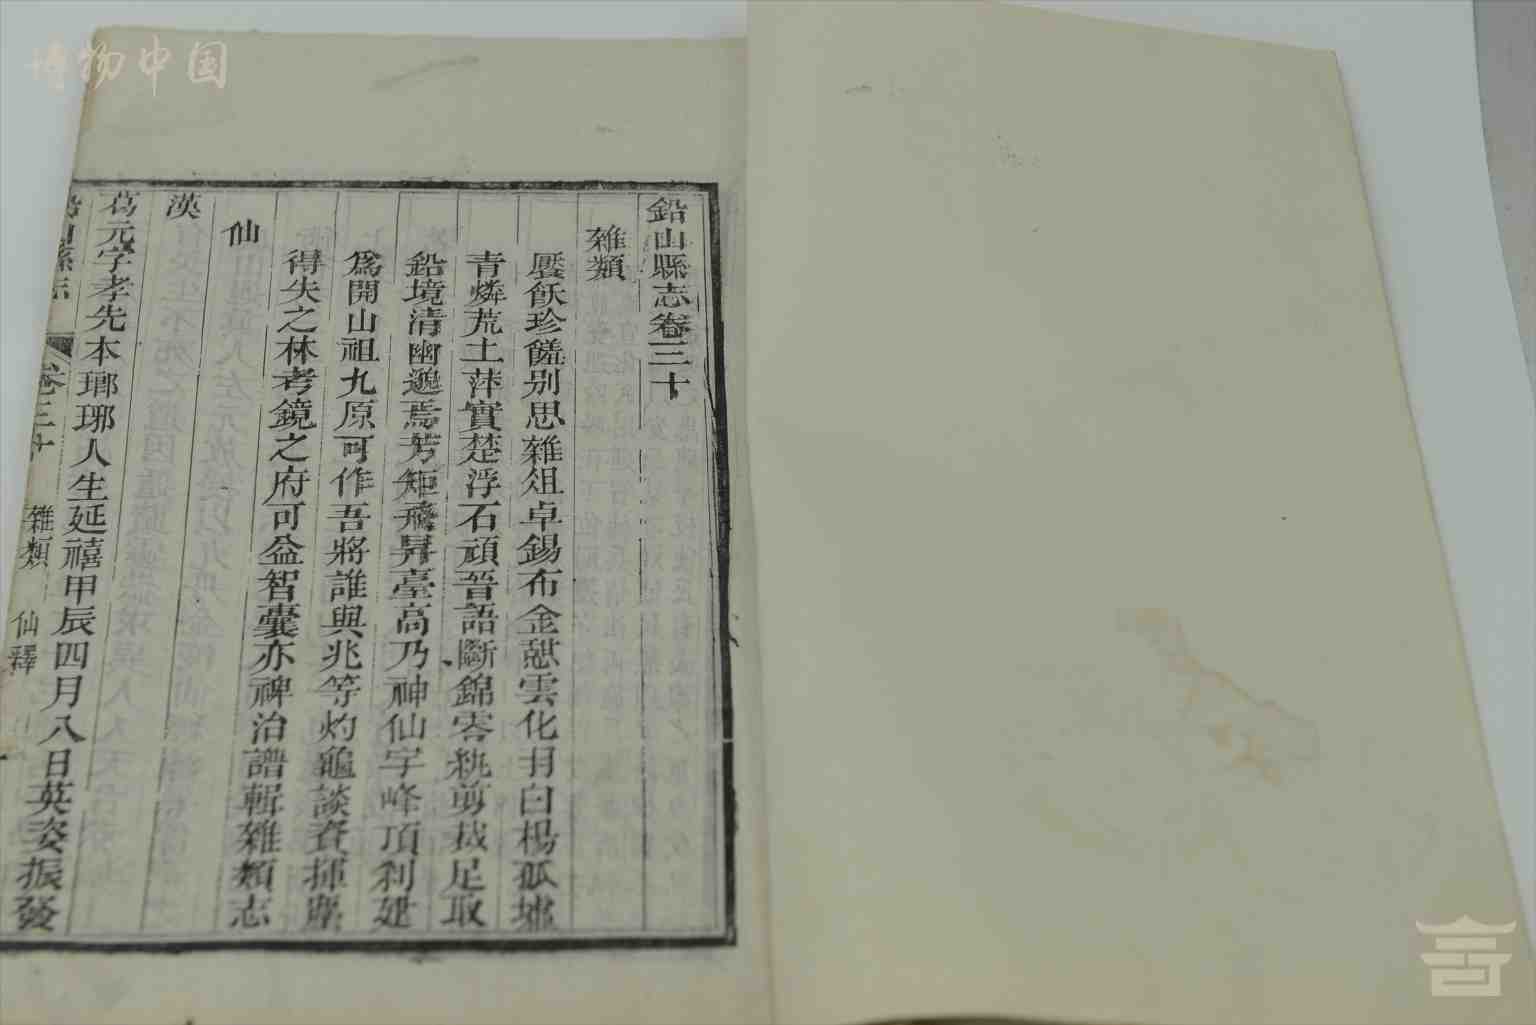 博物中国
鉛山縣志卷三十
雜類
饜飫珍饈別思雜俎卓錫布金慧雲化月白楊孤墟
青燐荒土萍實楚浮石頑晉語斷錦零紈剪裁足取
鉛境清幽邈焉芳矩飛昇臺高乃神仙宇峰頂刹建
爲開山祖九原可作吾將誰與兆等灼龜談資揮麈
得失之林考鏡之府可益智囊亦禆治譜輯雜類志
仙
漢
葛元字孝先本瑯琊人生延禧甲辰四月八日英姿振發
鉛山縣志 卷三十 雜類 仙釋